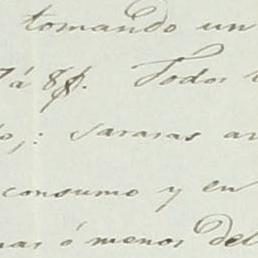 tomando un
7 á 8$. Todos
: sararas
consumo y en
ó menos del